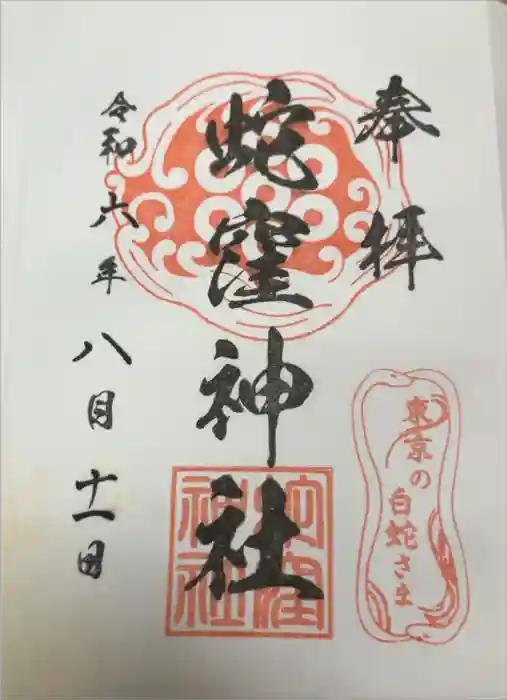 奉拝
蛇窪神社
蛇窪神社
東京の
白蛇さま
令和六年
八月十一日